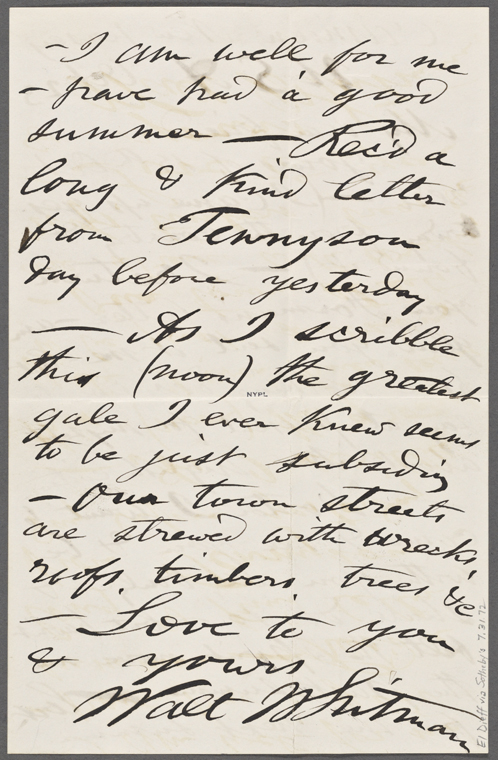 – I am well for me
– have had a good
summer — Rec'd a
long & kind letter
from Tennyson
day before yesterday
— As I scribble
this (noon) the greatest
NYPL
gale I ever knew seems
to be just subsiding
– Our town streets
are strewed with wrecks,
roofs, timbers trees &c
— Love to you
& yours
Walt Whitman
via Sotheby's 7.31.72